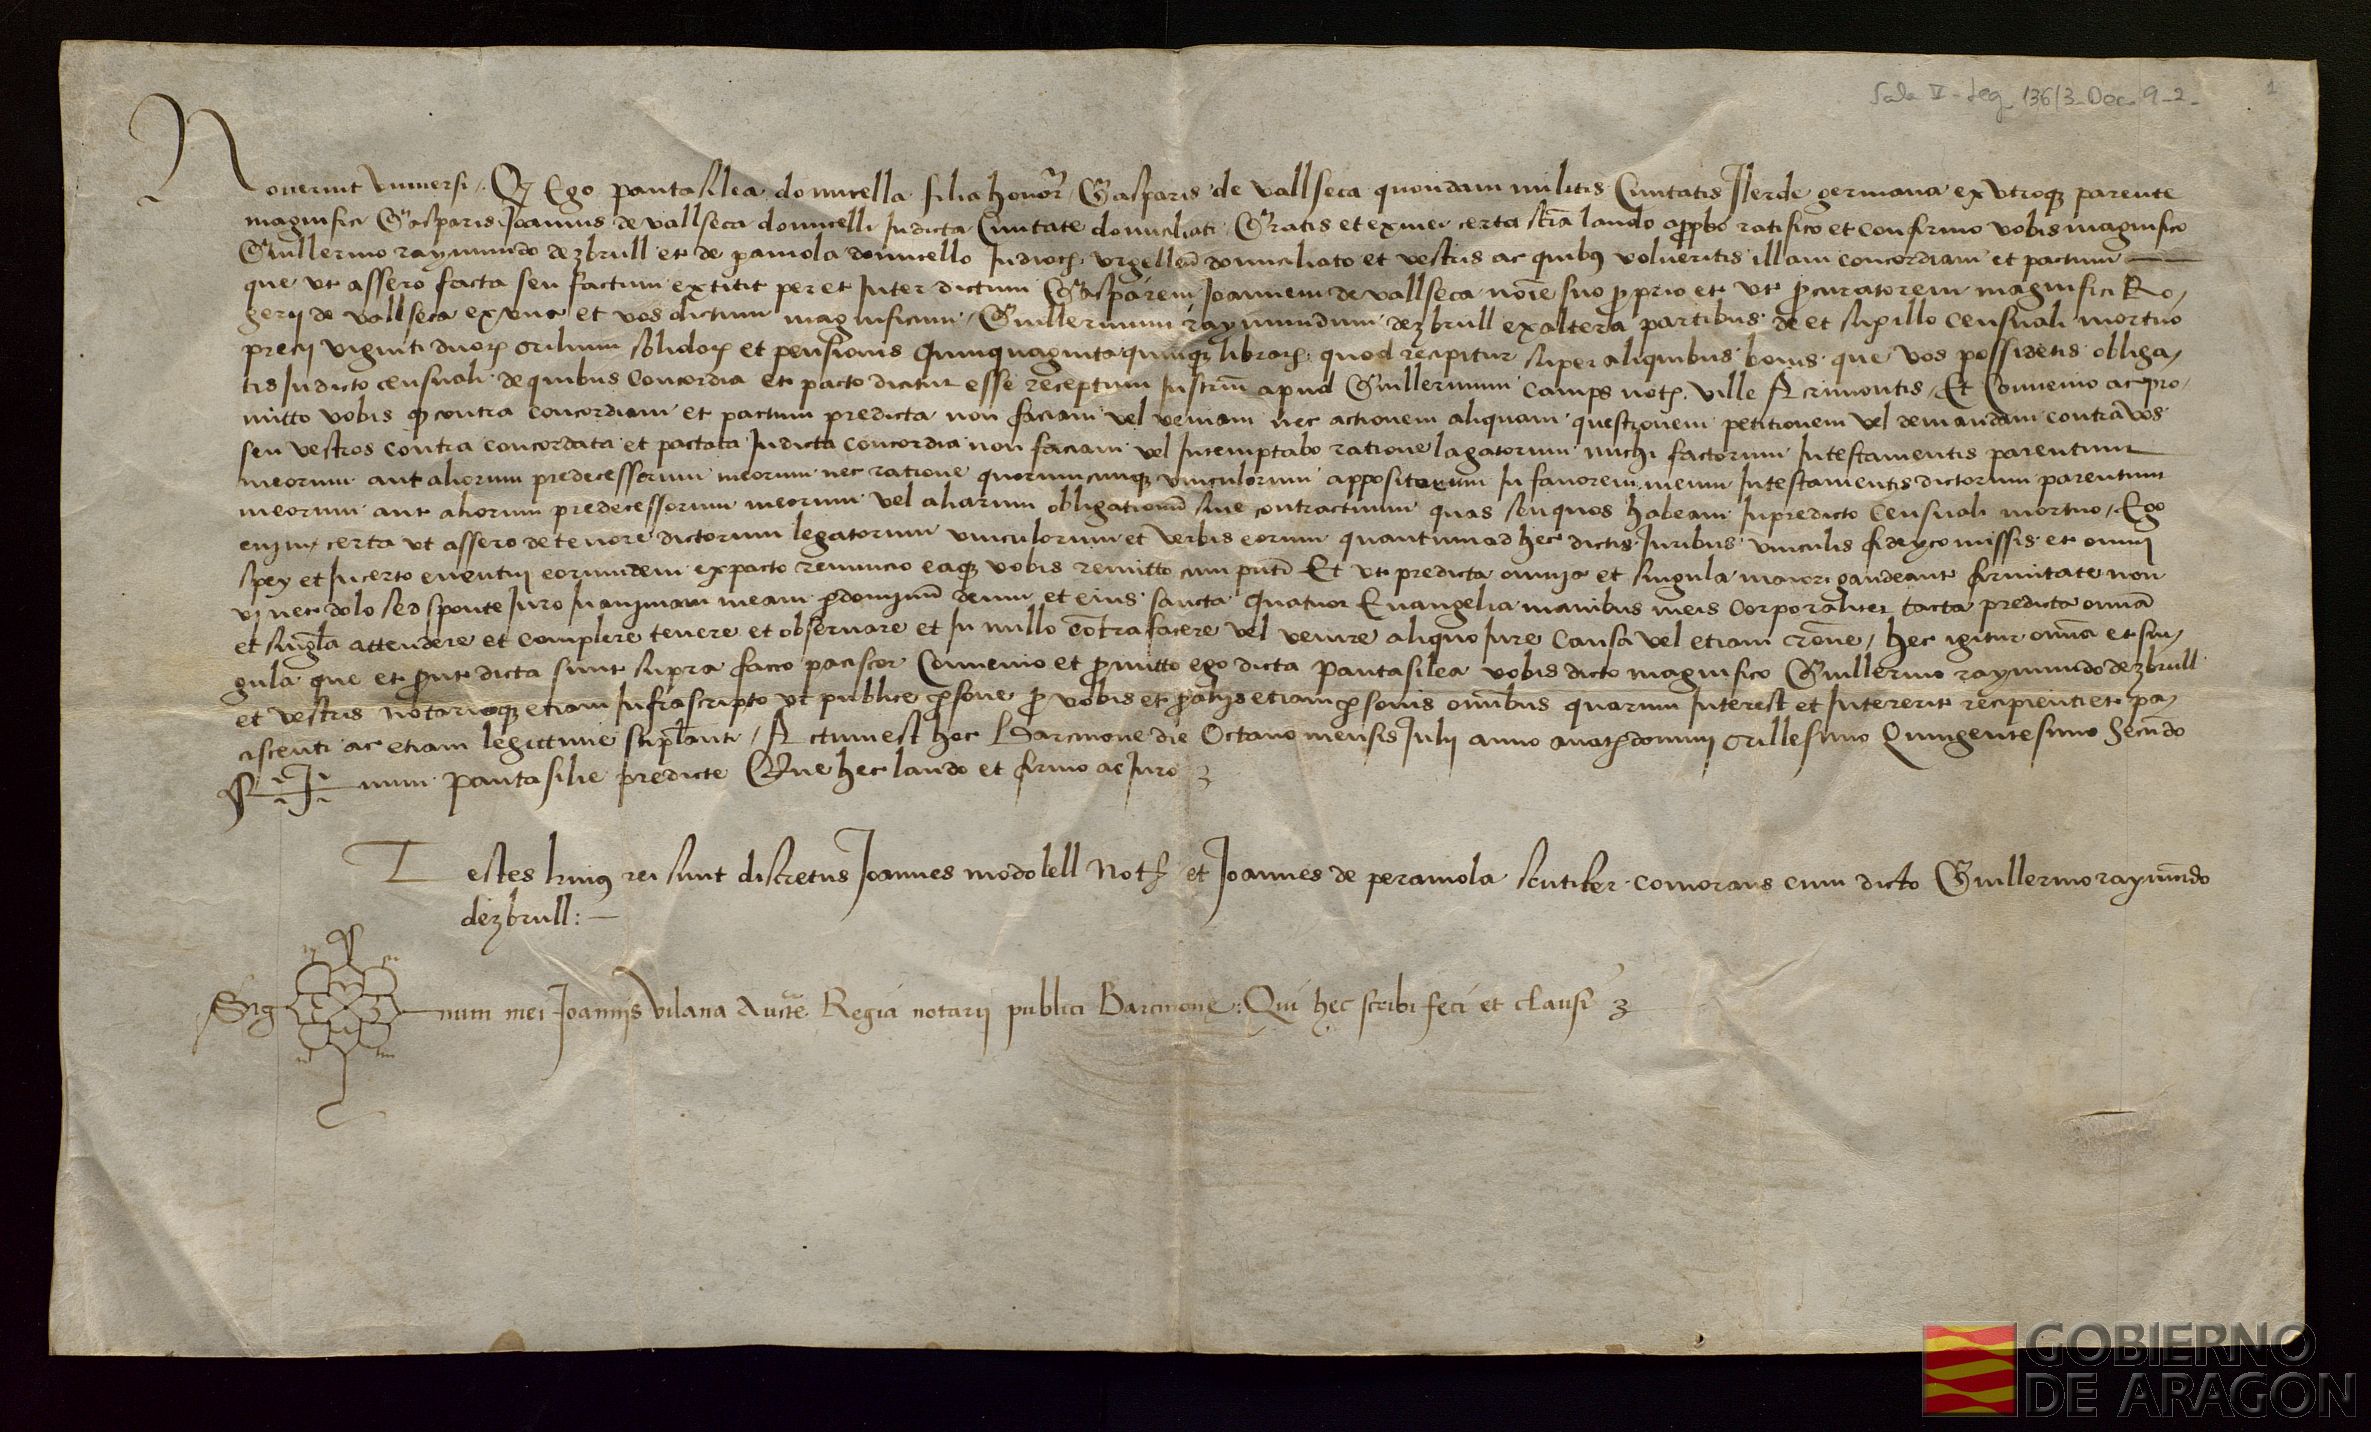 Sala V - Leg. 136/3 - Doc. 9-2-
1
Noverint universi. Q Ego pantasilea domicella filia honor Gasparis de vallseca quondam militis Civitatis Ilerde germana ex utroq parente
magnifici Gasparis Joannis de vallseca domicelli In dicta Civitate domiciliati Gratis et ex mei certa scia laudo approbo ratifico et confirmo vobis magnifico
Guillermo raymundo dezbrull et de pamola domicello In dioc urgellen domiciliato et vestris ac quibus volueritis illam concordiam et pactum
que ut assero facta seu factum extitit per et Inter dictum Gasparem Joannem de vallseca noie suo proprio et ut procuratorem magnifici Ro-
gerij de vallseca ex una et vos dictum magnificum Guillermum raymundum dezbrull ex altera partibus de et sup illo Censuali mortuo
precij viginti duor millium solidor et pensionis quinquaginta quinq librar quod recipitur super aliquibus bonis que vos possidetis obliga-
tis In dicto censuali de quibus Concordia et pacto dicitur esse receptum Instrum apud Guillermum Camps not ville Acrimontis, Et Convenio ac pro-
mitto vobis q contra concordiam et pactum predicta non faciam vel veniam nec actionem aliquam questionem petitionem vel demandam contra vos
seu vestros contra concordata et pactata In dicta concordia non faciam vel Intemptabo ratione lagatorum michi factorum In testamentis parentum
meorum aut aliorum predecessorum meorum nec ratione quorumcunq vinculorum appositorum In favorem meum In testamentis dictorum parentum
meorum aut aliorum predecessorum meorum vel aliarum obligationum sive contractuum quas seu quos habeam In predicto Censuali mortuo, Ego
enim certa ut assero de tenore dictorum legatorum vinculorum et verbis eorum quantum ad hec dictis Iuribus vinculis fideycomissis et omni
spey et Incerto eventuj eorumdem ex pacto renuncio eaq vobis remitto cum puti Et ut predicta omnia et singula maiori gaudeant firmitate non
vi nec dolo sed sponte Iuro In animam meam p dominum deum et eius sancta quatuor Evangelia manibus meis corporaliter tacta predicta omia
et singla attendere et complere tenere et observare et In nullo contrafacere vel venire aliquo Iure Causa vel etiam rone, hec igitur omia et sin-
gula que et prout dicta sunt supra facio paciscor Convenio et promitto ego dicta Pantasilea vobis dicto magnifico Guillermo raymundo dezbrull
et vestris notarioq etiam Infrascripto ut publice psone pro vobis et pro alijs etiam psonis omibus quarum Interest et Intererit recipienti et pa-
ciscenti ac etiam legittime stiplanti, Actum est hoc Barcinone die Octavo mensis Iulij anno a nat domini Millesimo Quingentesimo Secundo
Sig num Pantasilie predicte Que hec laudo et firmo ac Iuro
Testes huius rei sunt discretus Joannes modolell Not et Joannes de peramola scutifer comorans cum dicto Guillermo raymundo
dezbrull: —
Sig num mei Joannis Vilana Aucte Regia notarij publici Barcinone: Qui hec scribi feci et clausi
GOBIERNO
DE ARAGON